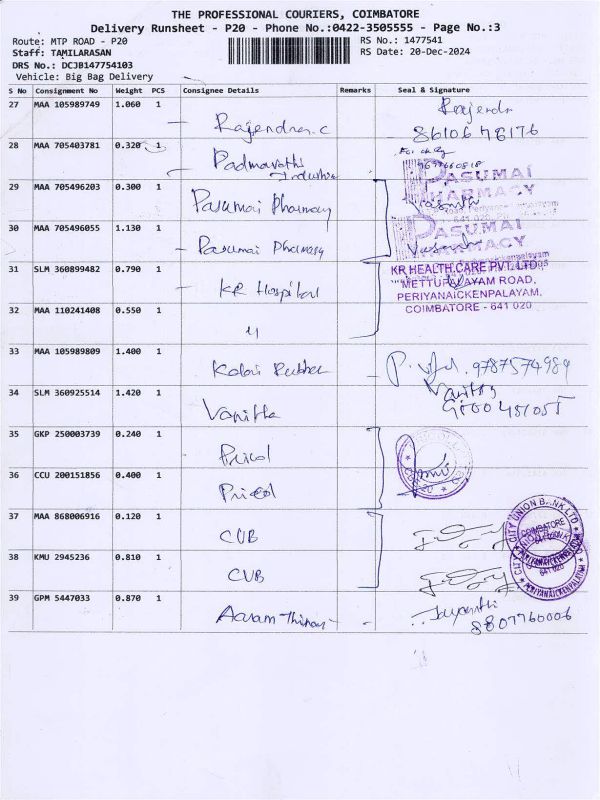 THE PROFESSIONAL COURIERS, COIMBATORE
Delivery Runsheet - P20 - Phone No.:0422-3505555 - Page No.:3
Route: MTP ROAD - P20
RS No.: 1477541
Staff: TAMILARASAN
RS Date: 20-Dec-2024
DRS No.: DCJB147754103
Vehicle: Big Bag Delivery
S No Consignment No Weight PCS Consignee Details Remarks Seal & Signature
27 MAA 105989749 1.060 1 Rajendran.c Rajendr
86106 78176
28 MAA 705403781 0.320 1 Padmavathi
Industries
29 MAA 705496203 0.300 1 Pasumai Pharmacy PASUMAI
PHARMACY
30 MAA 705496055 1.130 1 Pasumai Pharmacy PASUMAI
PHARMACY
31 SLM 360899482 0.790 1 KR Hospital KR HEALTH CARE PVT. LTD.
METTUPALAYAM ROAD,
PERIYANAICKENPALAYAM,
COIMBATORE - 641 020
32 MAA 110241408 0.550 1 "
33 MAA 105989809 1.400 1 Kalai Rubber 9787574989
34 SLM 360925514 1.420 1 Vanitha
35 GKP 250003739 0.240 1 Pricol
36 CCU 200151856 0.400 1 Pricol
37 MAA 868006916 0.120 1 CUB CITY UNION BANK LTD
COIMBATORE
641 020
PERIYANAICKENPALAYAM
38 KMU 2945236 0.810 1 CUB
39 GPM 5447033 0.870 1 Jayanthi
8807760006